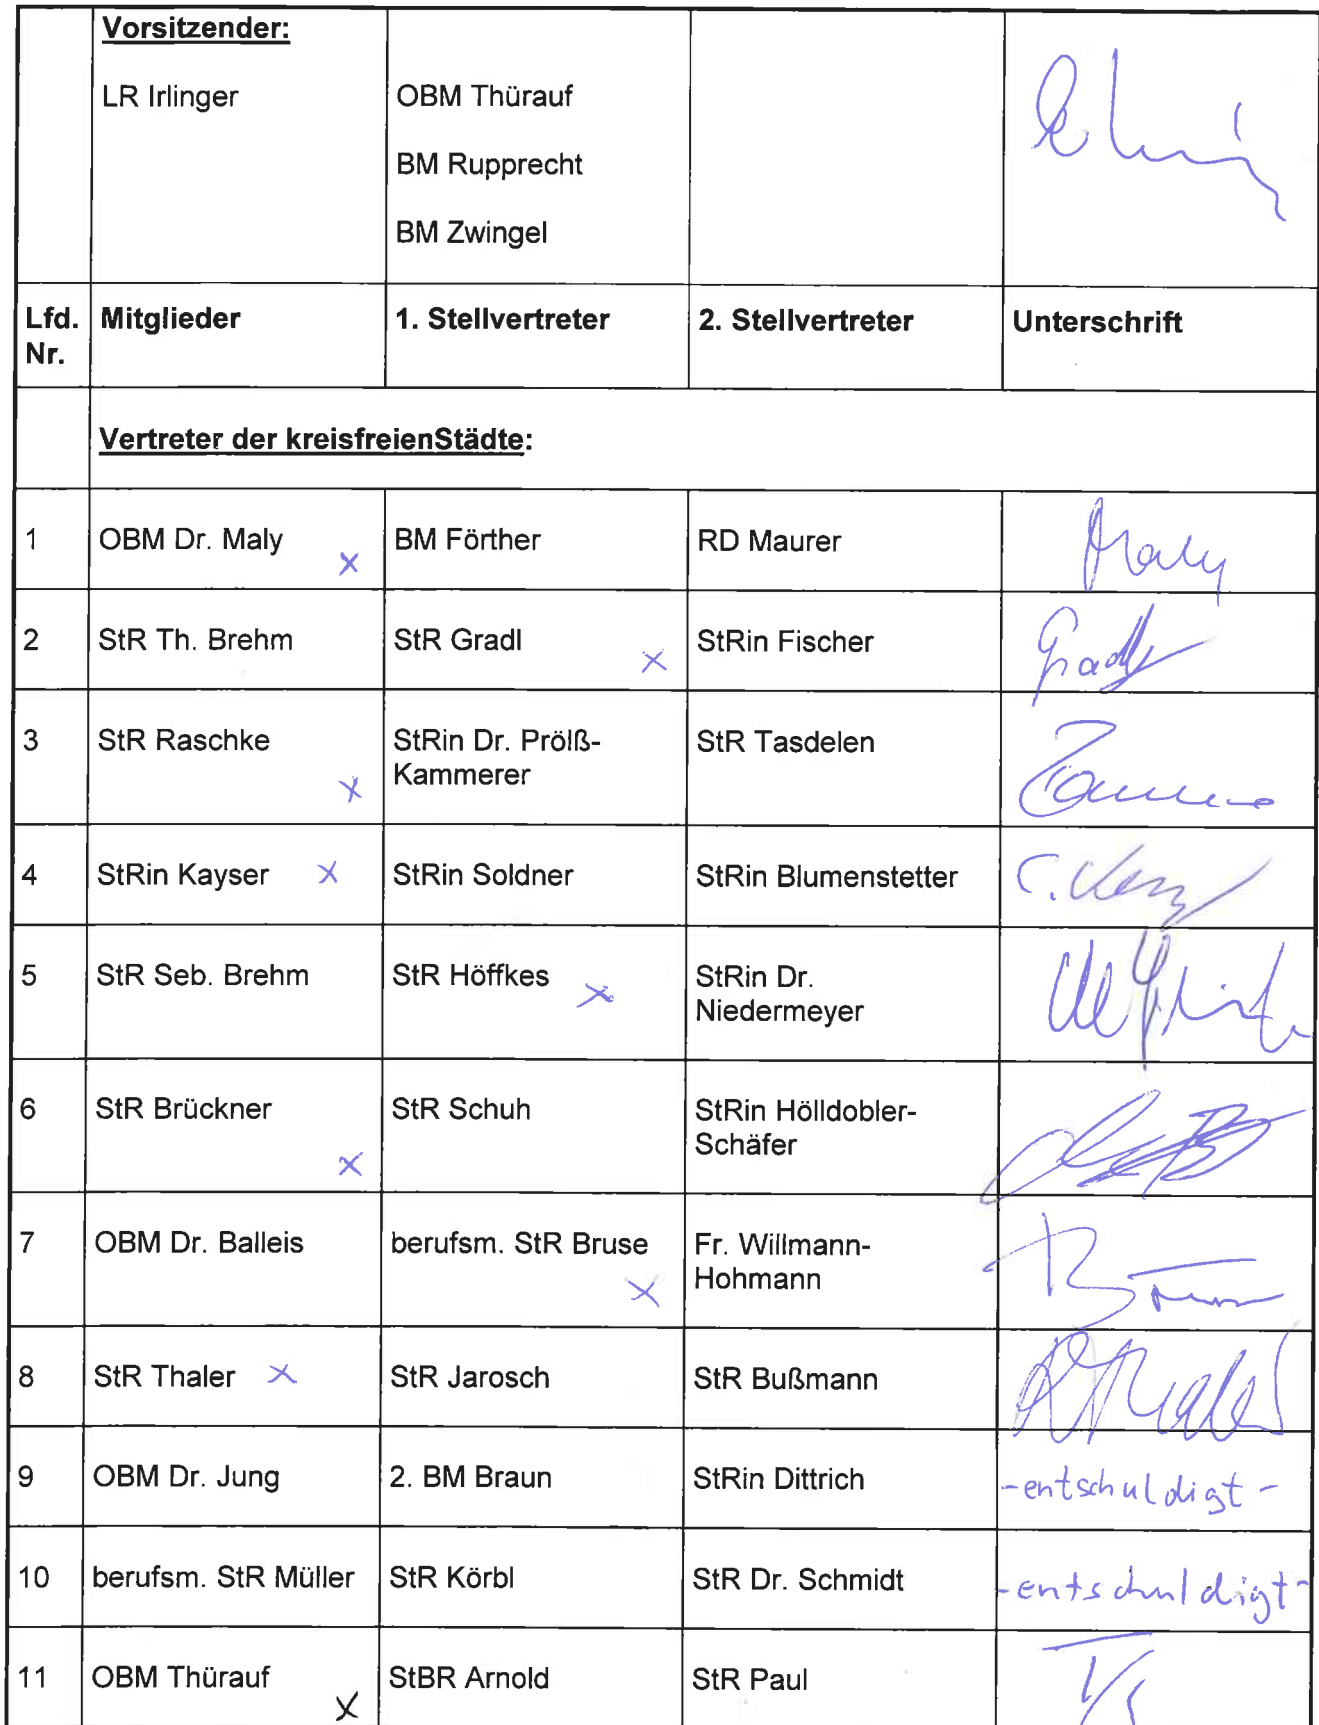 Vorsitzender:
LR Irlinger OBM Thürauf
BM Rupprecht
BM Zwingel
Lfd. Mitglieder 1. Stellvertreter 2. Stellvertreter Unterschrift
Nr.
Vertreter der kreisfreienStädte:
1 OBM Dr. Maly x BM Förther RD Maurer Maly
2 StR Th. Brehm StR Gradl x StRin Fischer Gradl
3 StR Raschke x StRin Dr. Prölß- StR Tasdelen
Kammerer
4 StRin Kayser x StRin Soldner StRin Blumenstetter
5 StR Seb. Brehm StR Höffkes x StRin Dr.
Niedermeyer
6 StR Brückner x StR Schuh StRin Hölldobler-
Schäfer
7 OBM Dr. Balleis berufsm. StR Bruse x Fr. Willmann-
Hohmann
8 StR Thaler x StR Jarosch StR Bußmann
9 OBM Dr. Jung 2. BM Braun StRin Dittrich -entschuldigt-
10 berufsm. StR Müller StR Körbl StR Dr. Schmidt -entschuldigt-
11 OBM Thürauf x StBR Arnold StR Paul